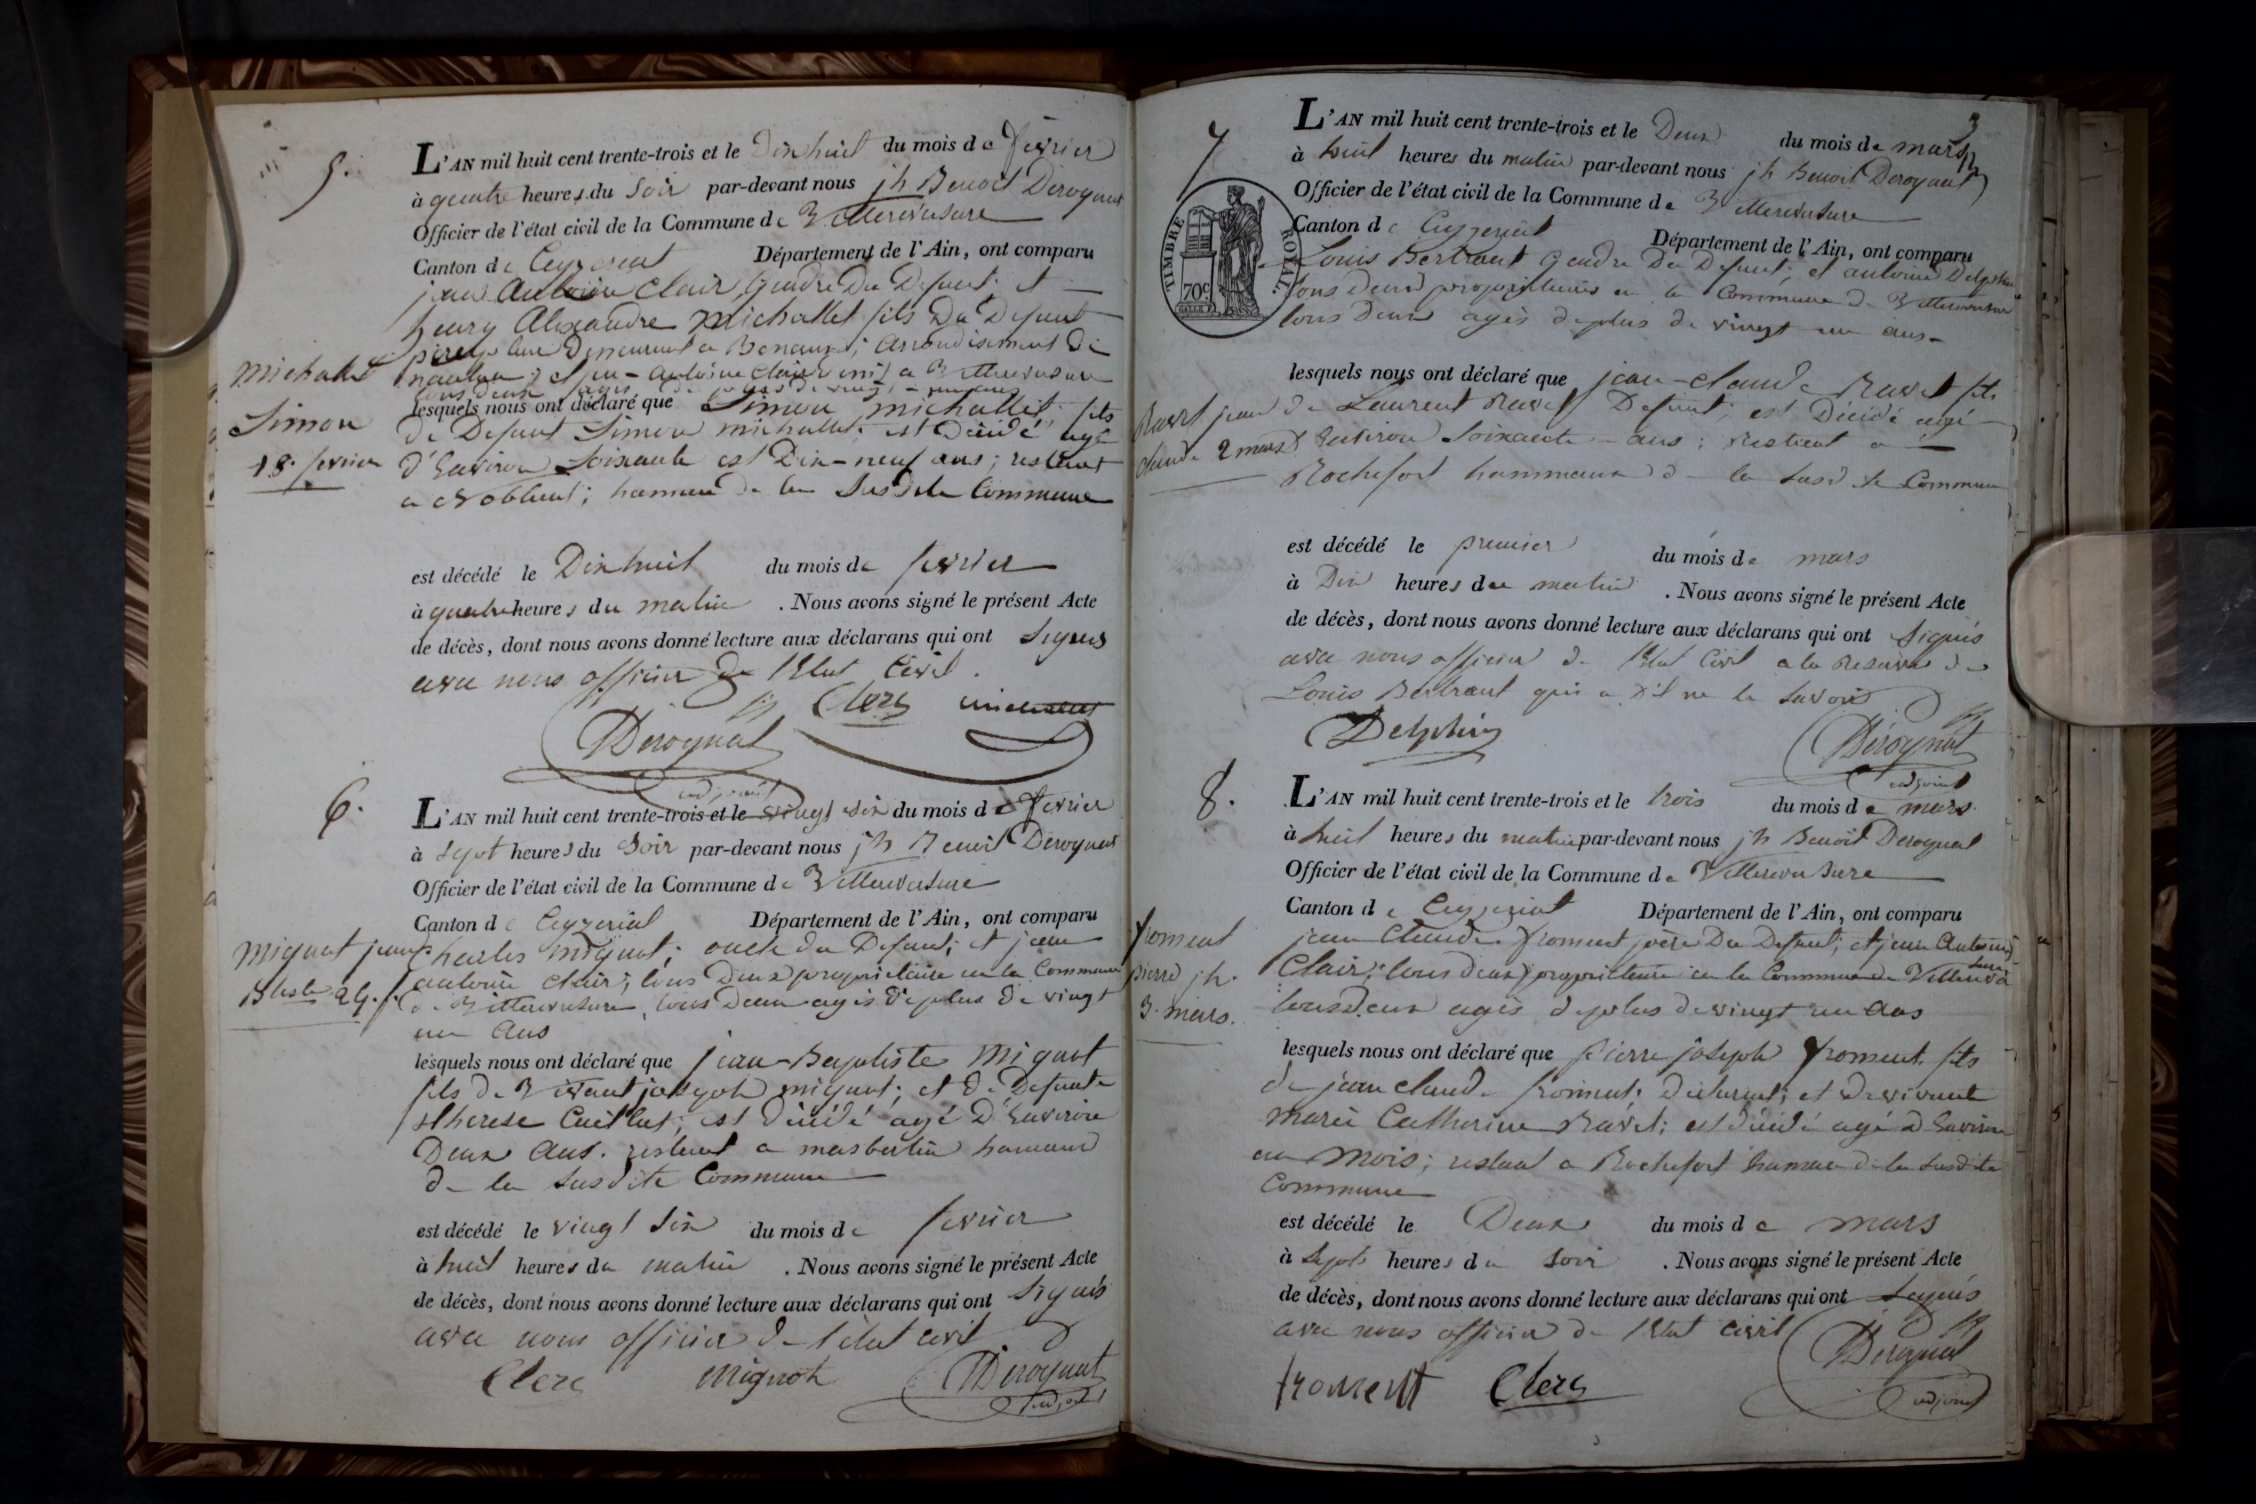 5.
L'AN mil huit cent trente-trois et le Dixhuit du mois de fevrier
à quatre heures du Soir par-devant nous jh Benoit Derognat
Officier de l'état civil de la Commune de Villereversure
Canton de Ceyzeriat Département de l'Ain, ont comparu
jean Antoine Clair, Gendre Du Defunt; et
henry Alexandre Michallet fils Du Defunt
demeurant a arrondissement De
nantua; et jean-antoine Clair a Villereversure
tous deux agés de plus de vingt-un ans
Michallet
Simon
18. fevrier
lesquels nous ont déclaré que Simon michallet fils
de Defunt Simon michallet est Décidé agé
d'Environ Soixante est Dix-neuf ans; restant
a Noblent; hameau De la Susdite Commune
est décédé le Dixhuit du mois de fevrier
à quatre heures du matin . Nous avons signé le présent Acte
de décès, dont nous avons donné lecture aux déclarans qui ont Signés
avec nous officier de l'Etat Civil.
Clerc michallet
Derognat
adjoint
6.
L'AN mil huit cent trente-trois et le vingt six du mois de fevrier
à Sept heures du Soir par-devant nous jh Benoit Derognat
Officier de l'état civil de la Commune de Villereversure
Canton de Ceyzeriat Département de l'Ain, ont comparu
Mignot jean
Bste
Charles mignot; oncle du Defunt; et jean
antoine Clair; tous Deux propriétaire en la Commune
de Villereversure, tous Deux agés De plus De vingt
un Ans
lesquels nous ont déclaré que jean-Baptiste Mignot
fils de Vivant joseph mignot; et De Defunte
therese Cuillat; est Décidé agé D'Environ
Deux Ans. restant a masbertin hameau
De la Susdite Commune
est décédé le vingt Six du mois de fevrier
à huit heures du matin . Nous avons signé le présent Acte
de décès, dont nous avons donné lecture aux déclarans qui ont Signés
avec nous officier de l'état civil
Clerc Mignot Derognat
adjoint
3
7
L'AN mil huit cent trente-trois et le Deux du mois de mars
à huit heures du matin par-devant nous jh Benoit Derognat
Officier de l'état civil de la Commune de Villereversure
Canton de Ceyzeriat Département de l'Ain, ont comparu
TIMBRE ROYAL.
70c
Louis Bertrant Gendre Du Defunt; et antoine Delphin
tous deux propriétaires en la Commune de Villereversure
tous Deux agés de plus de vingt un ans.
Ravet jean
Claude 2 mars
lesquels nous ont déclaré que jean-claude Ravet fils
de Laurent Ravet Defunt; est Décidé agé
Environ Soixante ans; restant a
Rochefort hammeaux de la Susdite Commune
est décédé le premier du mois de mars
à Dix heures du matin . Nous avons signé le présent Acte
de décès, dont nous avons donné lecture aux déclarans qui ont Signés
avec nous officier de l'Etat Civil a la Reserve de
Louis Bertrant qui a dit ne le Savoir
Delphin Derognat
adjoint
8.
L'AN mil huit cent trente-trois et le trois du mois de mars
à huit heures du matin par-devant nous jh Benoit Derognat
Officier de l'état civil de la Commune de Villereversure
Canton de Ceyzeriat Département de l'Ain, ont comparu
froment
pierre jh.
3. mars.
jean Claude froment père Du Defunt; et jean Antoine
Clair; tous deux propriétaire en la Commune de Villereversure
tous deux agés de plus de vingt un Ans
lesquels nous ont déclaré que pierre joseph froment fils
de jean claude froment; Déclarant; et de vivante
marie Catherine Ravet; est décidé agé d'Environ
un Mois; restant a Rochefort hameau de la Susdite
Commune
est décédé le Deux du mois de mars
à Sept heures du Soir . Nous avons signé le présent Acte
de décès, dont nous avons donné lecture aux déclarans qui ont Signés
avec nous officier de l'Etat civil
froment Clerc Derognat
adjoint